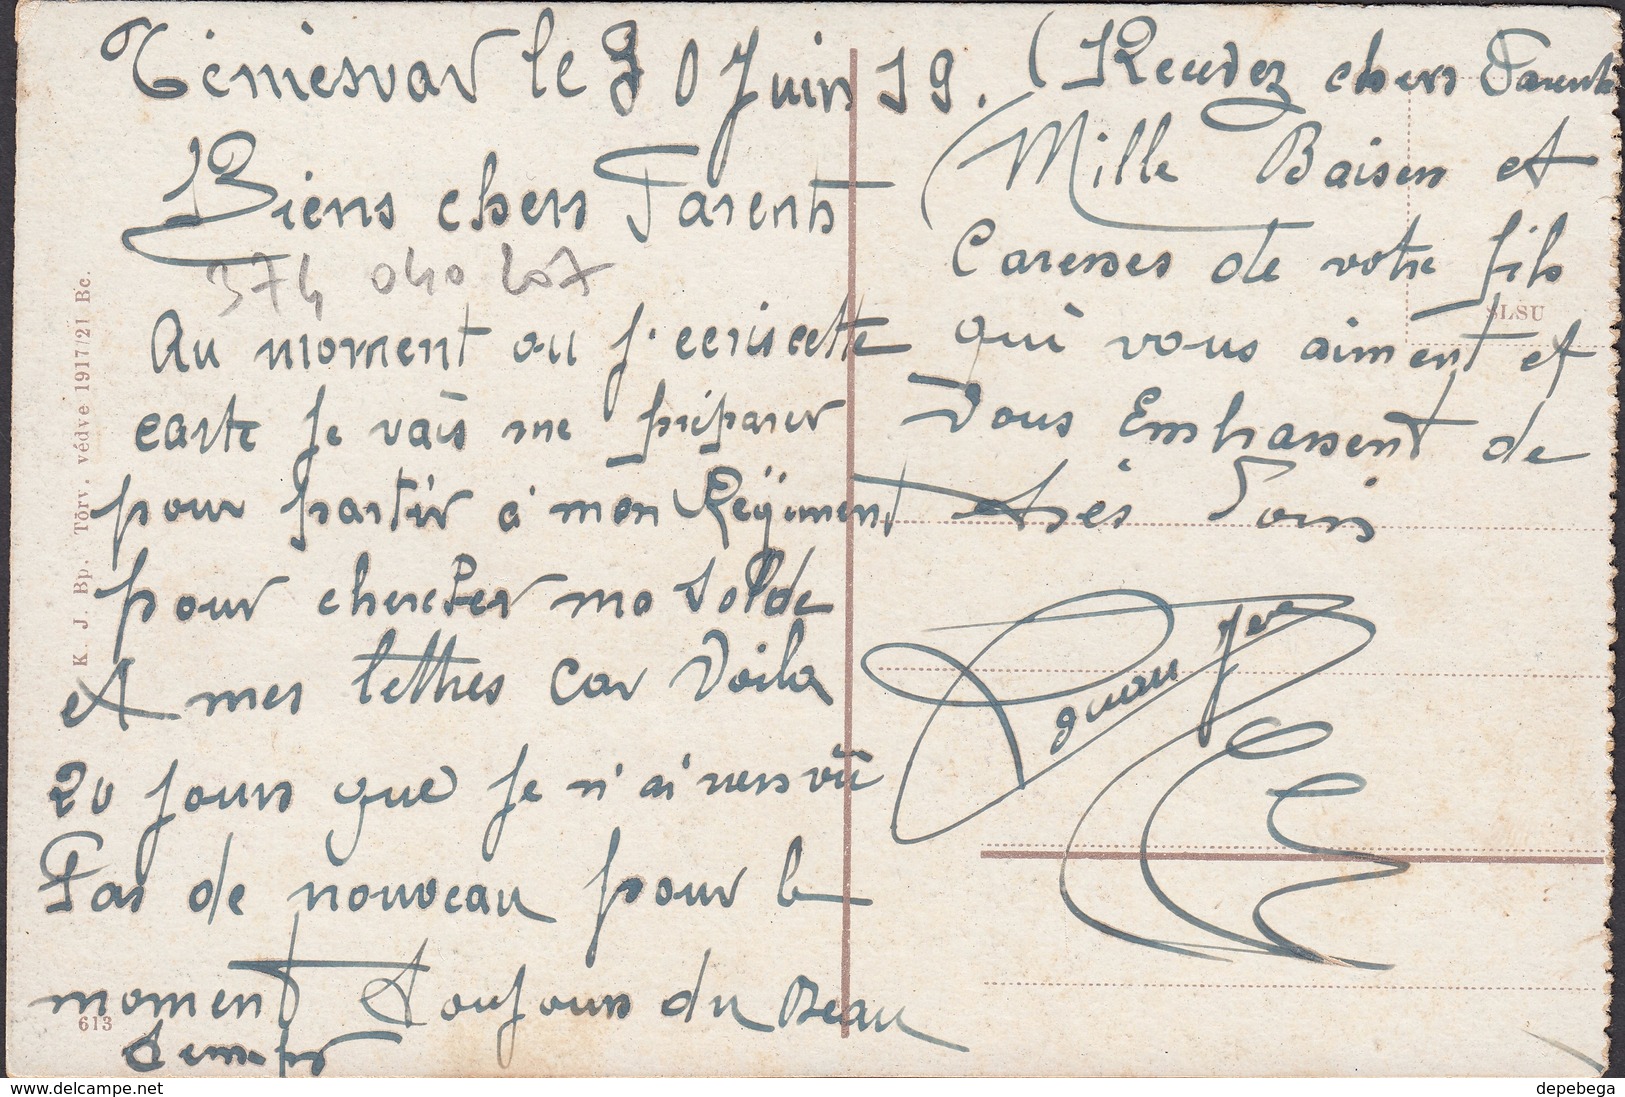 Témesvar le 30 Juin 19.
Biens chers Parents
374 040 207
Au moment ou j'ecris cette
carte je vais me préparer
pour partir à mon Régiment
pour chercher ma Solde
et mes lettres car Voila
20 jours que je n'ai riens vû
Pas de nouveau pour le
moment Toujours du Beau
temps
(Recevez chers Parents
Mille Baisers et
Caresses de votre fils
qui vous aiment et
Vous Embrassent de
très Loin
SLSU
K. J. Bp. Törv. védve 1917/21 Bc.
613
www.delcampe.net
depebega